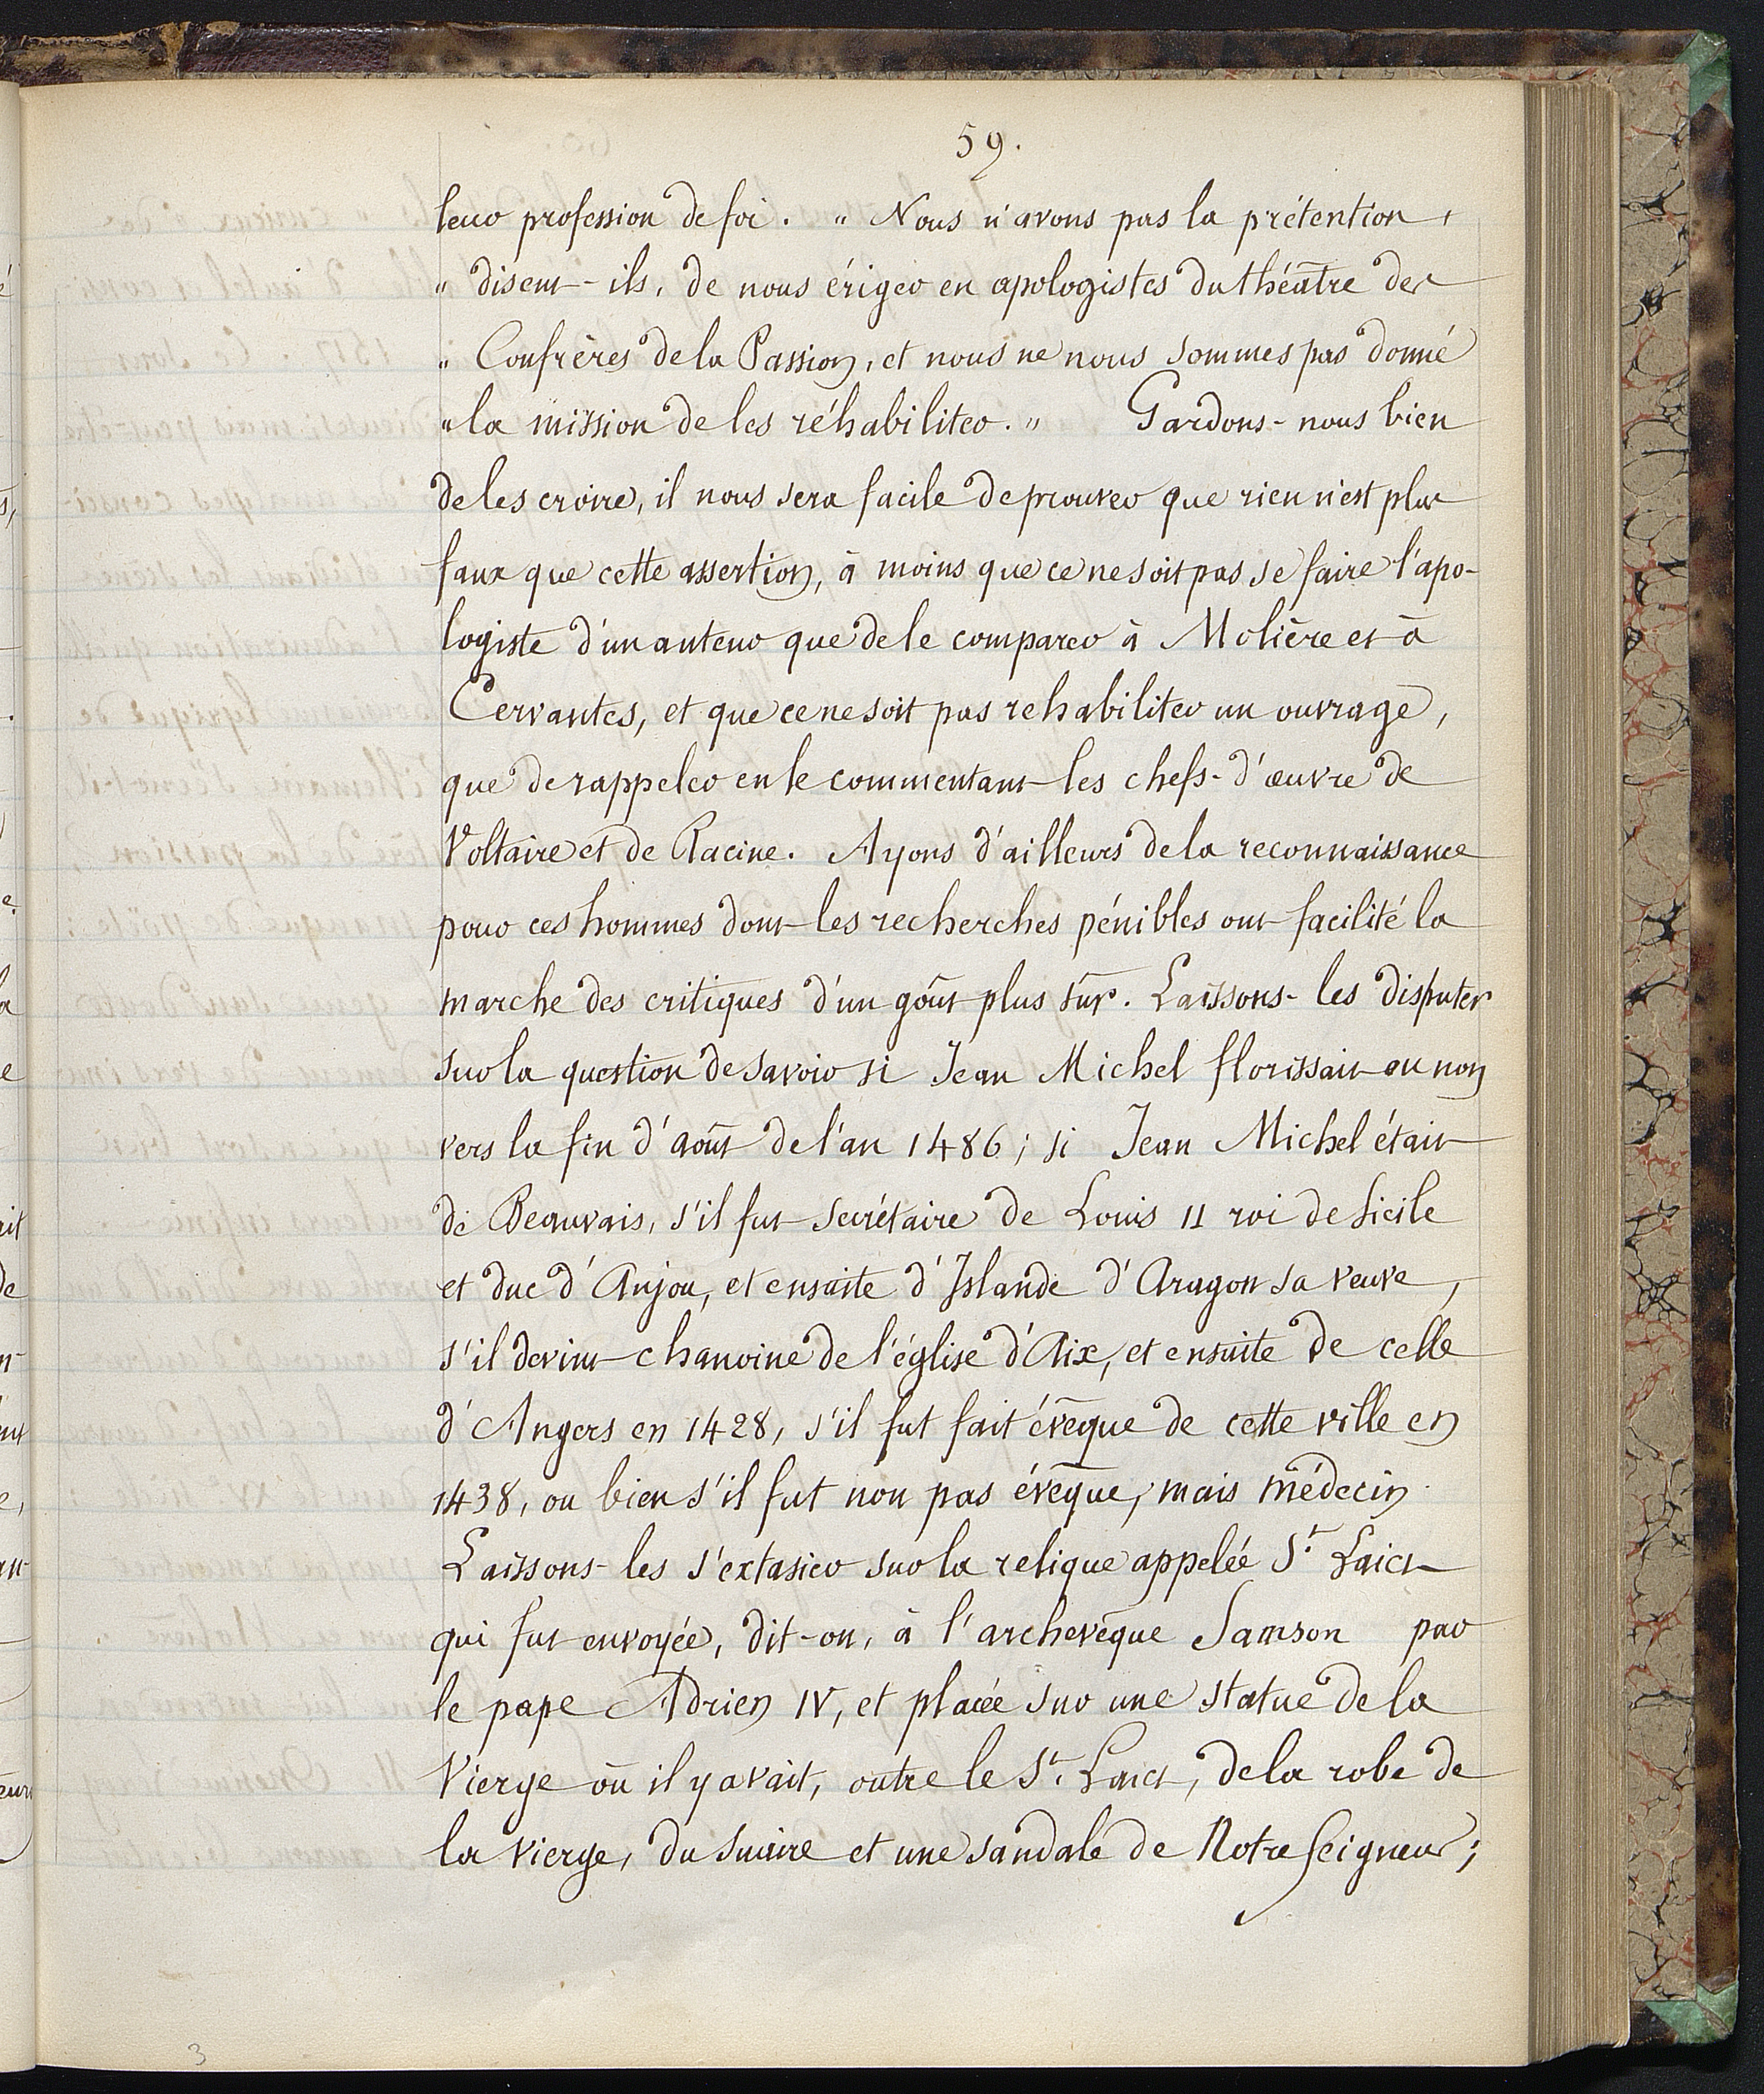 59.
leur profession de foi. " Nous n'avons pas la prétention,
" disent-ils, de nous ériger en apologistes du théâtre des
" Confrères de la Passion, et nous ne nous sommes pas donné
" la mission de les réhabiliter. " Gardons-nous bien
de les croire, il nous sera facile de prouver que rien n'est plus
faux que cette assertion, à moins que ce ne soit pas se faire l'apo-
logiste d'un auteur que de le comparer à Molière et à
Cervantes, et que ce ne soit pas rehabiliter un ouvrage,
que de rappeler en le commentant les chefs-d'œuvre de
Voltaire et de Racine. Ayons d'ailleurs de la reconnaissance
pour ces hommes dont les recherches pénibles ont facilité la
marche des critiques d'un goût plus sûr. Laissons-les disputer
sur la question de savoir si Jean Michel florissait ou non
vers la fin d'août de l'an 1486; si Jean Michel était
de Beauvais, s'il fut secrétaire de Louis II roi de Sicile
et duc d'Anjou, et ensuite d'Islande d'Aragon sa veuve,
s'il devint chanoine de l'église d'Aix, et ensuite de celle
d'Angers en 1428, s'il fut fait évêque de cette ville en
1438, ou bien s'il fut non pas évêque, mais médecin.
Laissons-les s'extasier sur la relique appelée St Laict
qui fut envoyée, dit-on, à l'archevêque Samson par
le pape Adrien IV, et placée sur une statue de la
Vierge où il y avait, outre le St. Laict, de la robe de
la Vierge, du suaire et une sandale de Notre Seigneur;
3